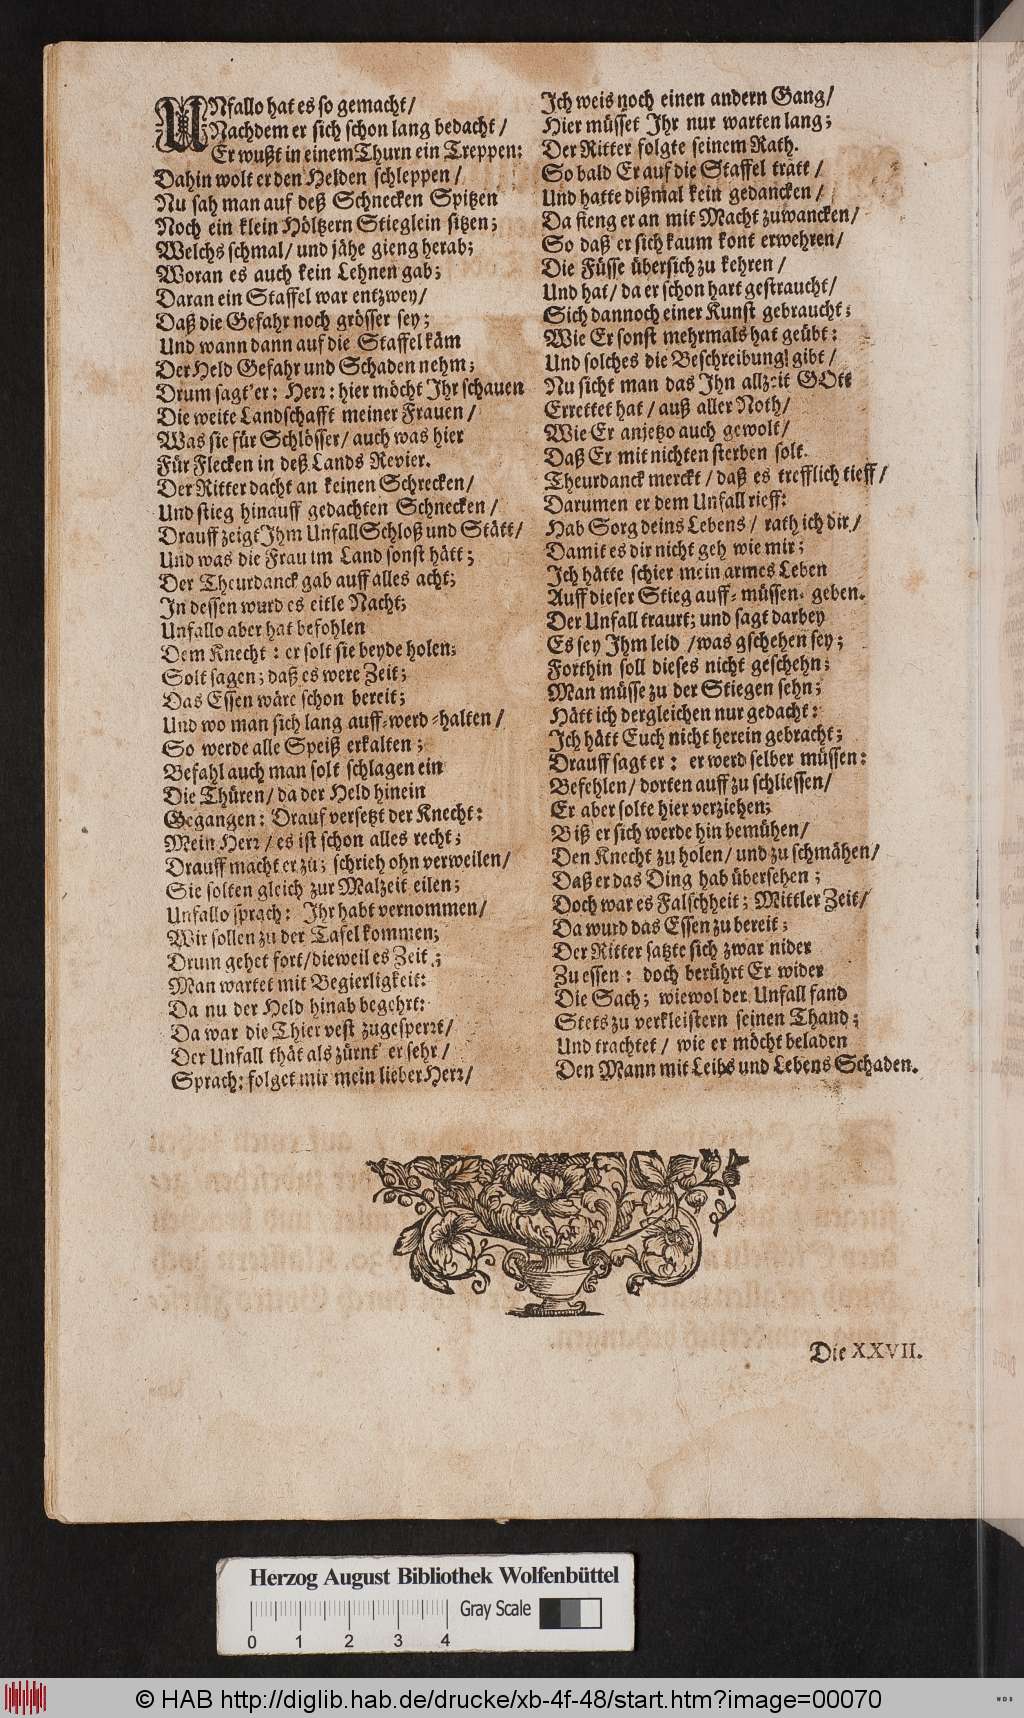 UNfallo hat es so gemacht/
Nachdem er sich schon lang bedacht/
Er wußt in einem Thurn ein Treppen:
Dahin wolt er den Helden schleppen/
Nu sah man auf deß Schnecken Spitzen
Noch ein klein Höltzern Stieglein sitzen;
Welchs schmal/ und jähe gieng herab;
Woran es auch kein Lehnen gab;
Daran ein Staffel war entzwey/
Daß die Gefahr noch grösser sey;
Und wann dann auf die Staffel käm
Der Held Gefahr und Schaden nehm;
Drum sagt'er: Herr: hier möcht Ihr schauen
Die weite Landschafft meiner Frauen/
Was sie für Schlösser/ auch was hier
Für Flecken in deß Lands Revier.
Der Ritter dacht an keinen Schrecken/
Und stieg hinauff gedachten Schnecken/
Drauff zeigt Ihm Unfall Schloß und Stätt/
Und was die Frau im Land sonst hätt;
Der Theurdanck gab auff alles acht;
In dessen wurd es eitle Nacht;
Unfallo aber hat befohlen
Dem Knecht: er solt sie beyde holen;
Solt sagen; daß es were Zeit;
Das Essen wäre schon bereit;
Und wo man sich lang auff-werd-halten/
So werde alle Speiß erkalten;
Befahl auch man solt schlagen ein
Die Thüren/ da der Held hinein
Gegangen: Drauf versetzt der Knecht:
Mein Herr/ es ist schon alles recht;
Drauff macht er zu; schrieh ohn verweilen/
Sie solten gleich zur Malzeit eilen;
Unfallo sprach: Ihr habt vernommen/
Wir sollen zu der Tafel kommen;
Drum gehet fort/ dieweil es Zeit;
Man wartet mit Begierligkeit:
Da nu der Held hinab begehrt:
Da war die Thier vest zugesperrt/
Der Unfall thät als zürnt er sehr/
Sprach: folget mir mein lieber Herr/
Ich weis noch einen andern Gang/
Hier müsset Ihr nur warten lang;
Der Ritter folgte seinem Rath.
So bald Er auf die Staffel tratt/
Und hatte dißmal kein gedancken/
Da fieng er an mit Macht zuwancken/
So daß er sich kaum kont erwehren/
Die Füsse übersich zu kehren/
Und hat/ da er schon hart gestraucht/
Sich dannoch einer Kunst gebraucht;
Wie Er sonst mehrmals hat geübt:
Und solches die Beschreibung gibt/
Nu sicht man das Ihn allzeit GOtt
Errettet hat/ auß aller Noth/
Wie Er anjetzo auch gewolt/
Daß Er mit nichten sterben solt.
Theurdanck merckt/ daß es trefflich tieff/
Darumen er dem Unfall rieff:
Hab Sorg deins Lebens/ rath ich dir/
Damit es dir nicht geh wie mir;
Ich hätte schier mein armes Leben
Auff dieser Stieg auff-müssen-geben.
Der Unfall traurt; und sagt darbey
Es sey Ihm leid/ was gschehen sey;
Forthin soll dieses nicht geschehn;
Man müsse zu der Stiegen sehn;
Hätt ich dergleichen nur gedacht:
Ich hätt Euch nicht herein gebracht;
Drauff sagt er: er werd selber müssen:
Befehlen/ dorten auff zu schliessen/
Er aber solte hier verziehen;
Biß er sich werde hin bemühen/
Den Knecht zu holen/ und zu schmähen/
Daß er das Ding hab übersehen;
Doch war es Falschheit; Mittler Zeit/
Da wurd das Essen zu bereit;
Der Ritter satzte sich zwar nider
Zu essen: doch berührt Er wider
Die Sach; wiewol der Unfall fand
Stets zu verkleistern seinen Thand;
Und trachtet/ wie er möcht beladen
Den Mann mit Leibs und Lebens Schaden.
Die XXVII.
Herzog August Bibliothek Wolfenbüttel
Gray Scale
0 1 2 3 4
© HAB http://diglib.hab.de/drucke/xb-4f-48/start.htm?image=00070